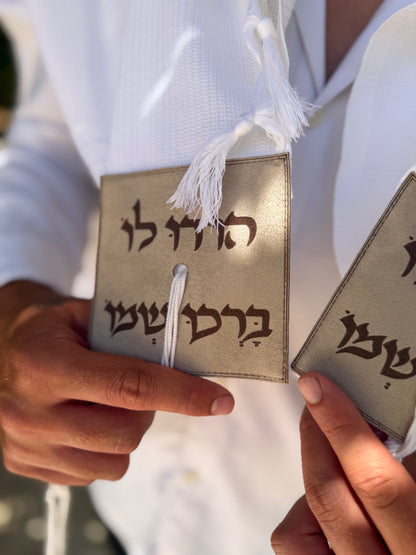 הוֹדוּ לוֹ
בָּרְכוּ שְׁמוֹ
שְׁמוֹ